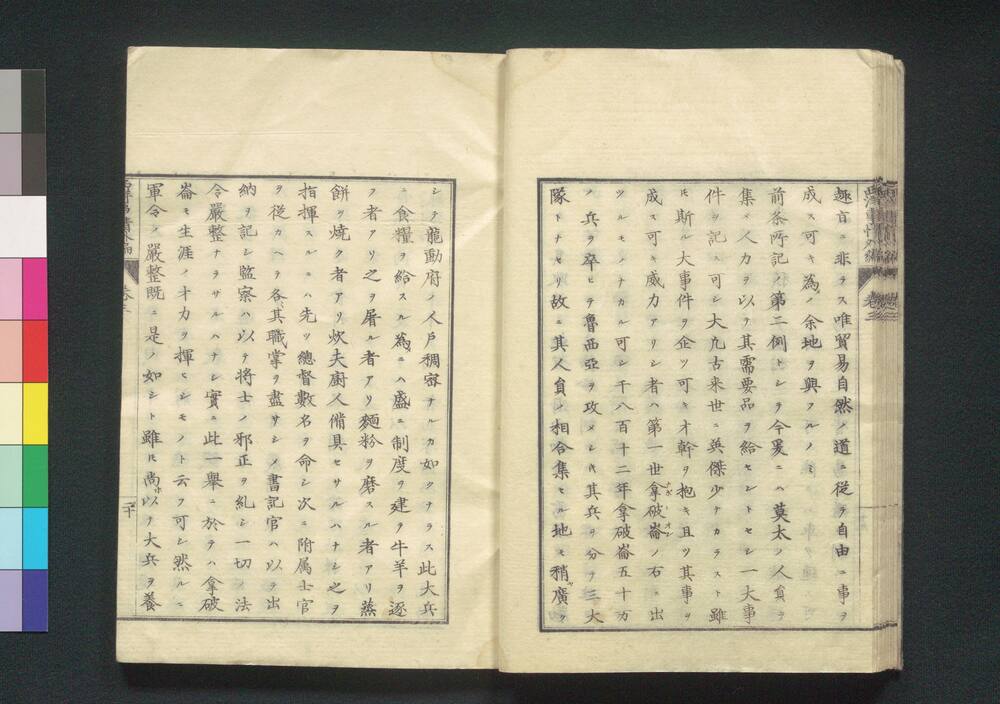 趣旨ニ非ラス唯貿易自然ノ道ニ従テ自由ニ事ヲ
成ス可キ為メ余地ヲ與フルノミ
前条所記ノ第二例トシテ今爰ニハ莫太ノ人員ヲ
集メ人力ヲ以テ其需要品ヲ給セントセシ一大事
件ヲ記ス可シ大凡古来世ニ英傑少ナカラスト雖
𪜈斯ル大事件ヲ企ツ可キ才幹ヲ抱キ且ツ其事ヲ
成ス可キ威力アリシ者ハ第一世拿破崙ノ右ニ出
ツルモノナカル可シ千八百十二年拿破崙五十万
ノ兵ヲ卒ヒテ魯西亞ヲ攻メシ𪜈其兵ヲ分テ三大
隊トナセリ故ニ其人員ノ相合集セル地モ稍廣ク
シテ龍動府ノ人戸稠密ナルカ如クナラス此大兵
ニ食糧ヲ給スル為メニハ盛ニ制度ヲ建テ牛羊ヲ逐
フ者アリ之ヲ屠ル者アリ麺粉ヲ磨スル者アリ蒸
餅ヲ焼ク者アリ炊夫廚人備具セサルハナシ之ヲ
指揮スルニハ先ツ總督數名ヲ命シ次ニ附属士官
ヲ従カヘテ各其職掌ヲ盡サシメ書記官ハ以テ出
納ヲ記シ監察ハ以テ将士ノ邪正ヲ糺シ一切ノ法
令嚴整ナラサルハナシ實ニ此一舉ニ於テハ拿破
崙モ生涯ノ才力ヲ揮ヒシモノト云フ可シ然ルニ
軍令ノ嚴整既ニ是ノ如シト雖𪜈尚ホ以テ大兵ヲ養